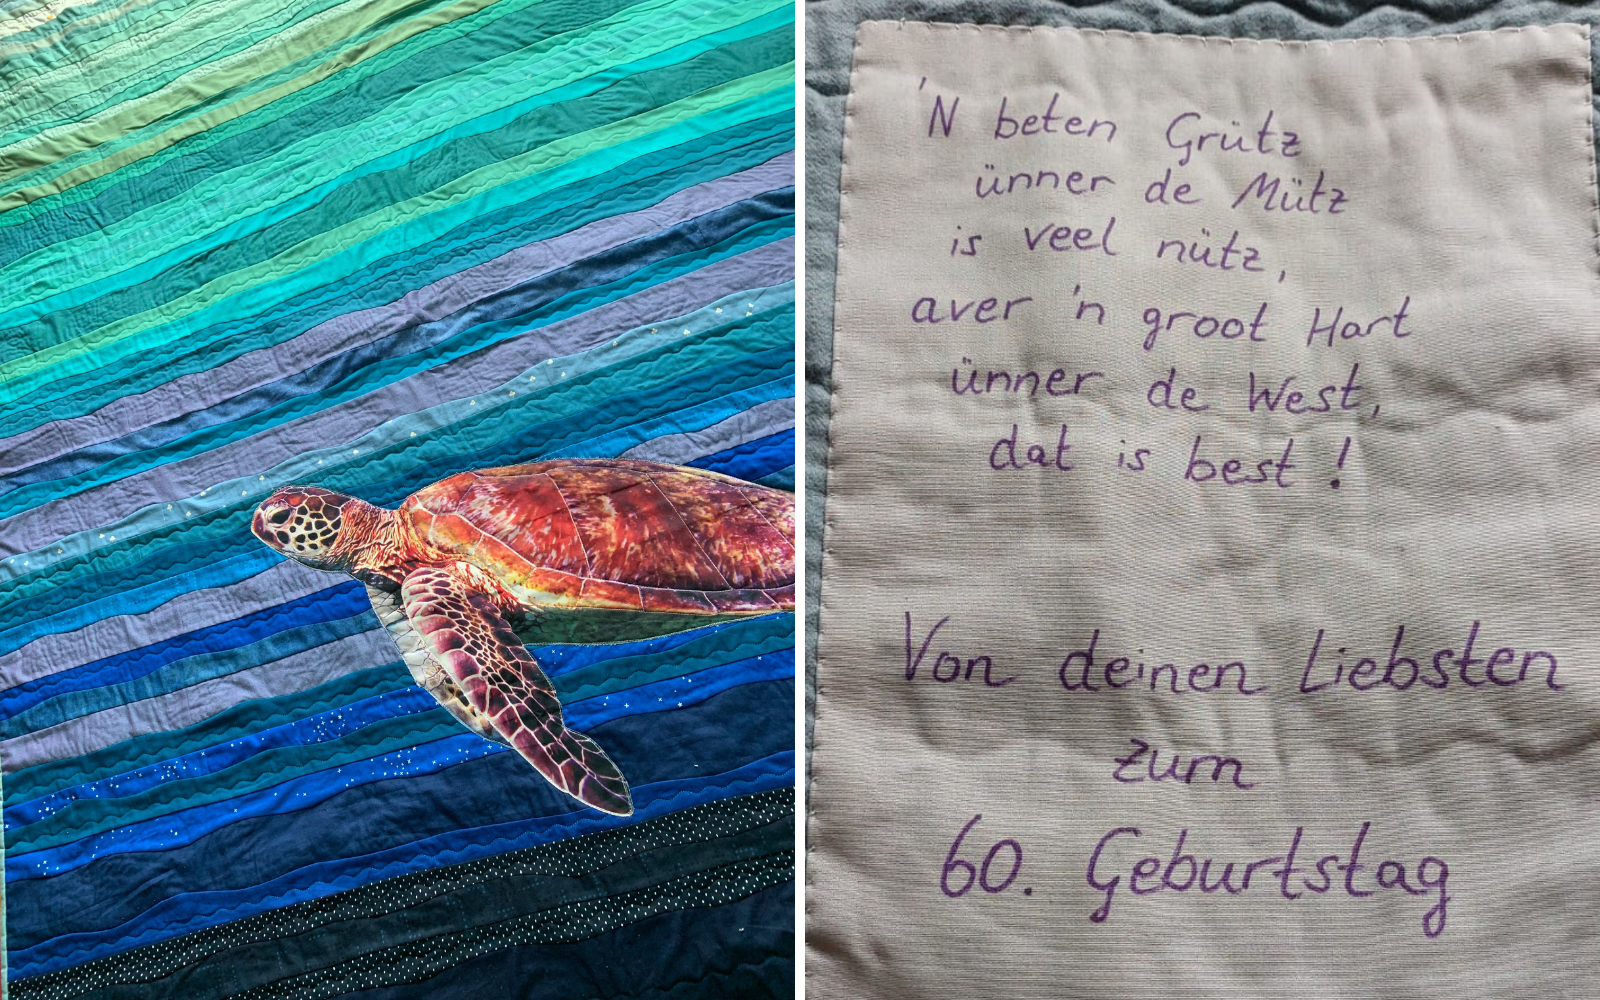 'N beten Grütz
ünner de Mütz
is veel nütz,
aver 'n groot Hart
ünner de West,
dat is best!
Von deinen Liebsten
zum
60. Geburtstag